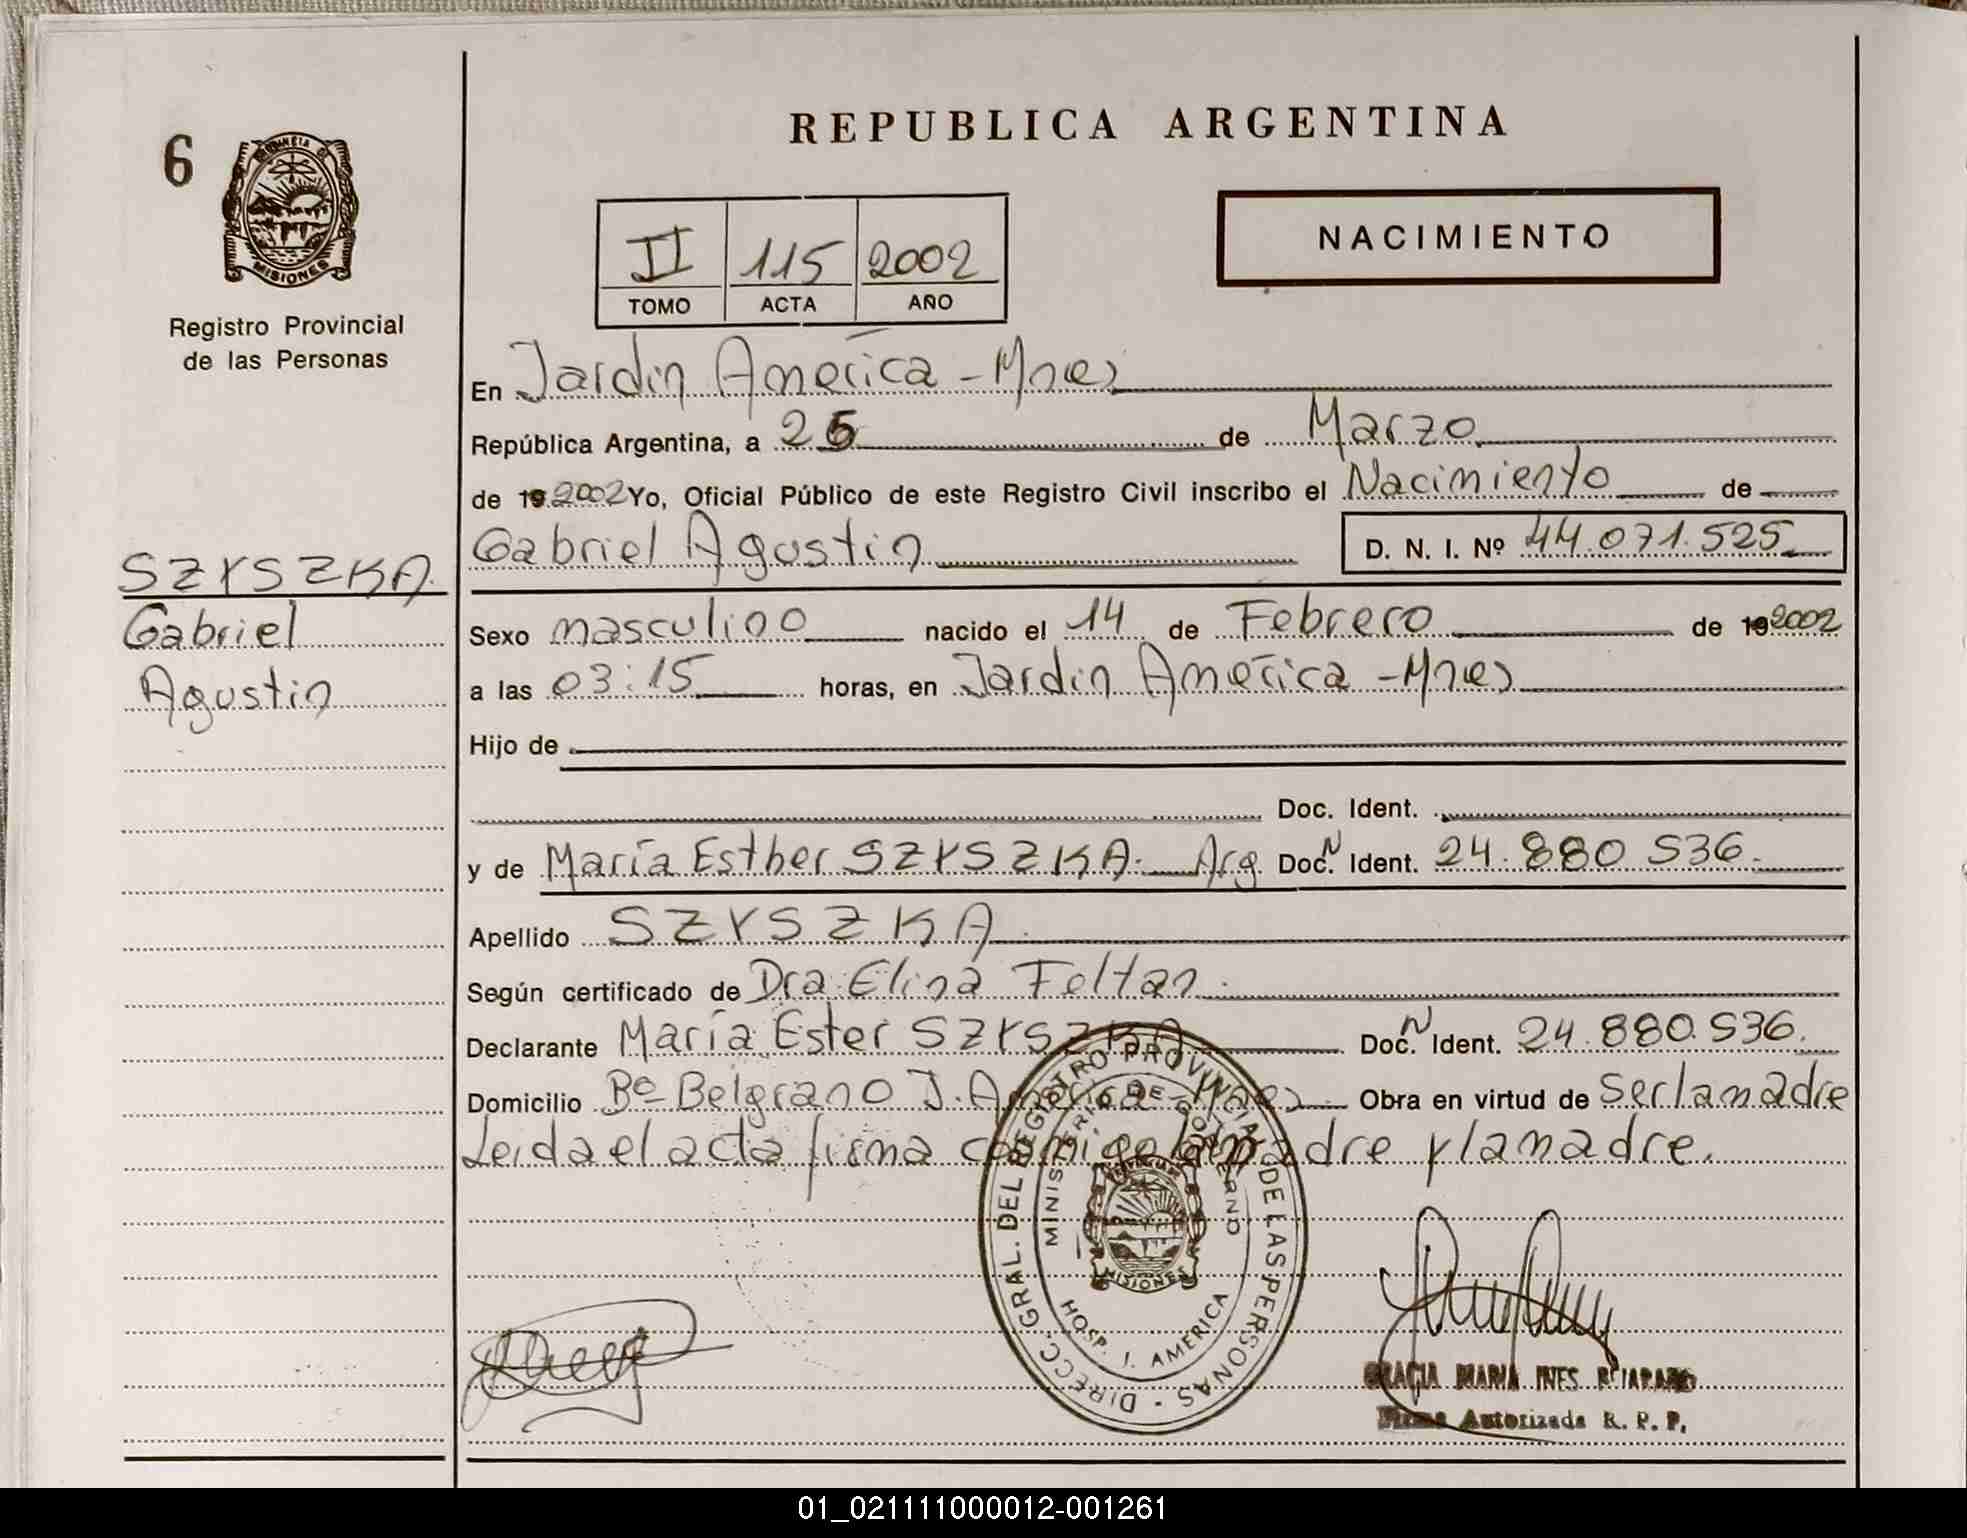 REPUBLICA ARGENTINA
6
PROVINCIA DE
MISIONES
Registro Provincial
de las Personas
II 115 2002
TOMO ACTA AÑO
NACIMIENTO
En Jardín América - Mnes
República Argentina, a 26 de Marzo
de 19 2002 Yo, Oficial Público de este Registro Civil inscribo el Nacimiento de
Gabriel Agustin D. N. I. Nº 44.071.525
SZYSZKA
Gabriel
Agustin
Sexo masculino nacido el 14 de Febrero de 19 2002
a las 03:15 horas, en Jardin América - Mnes
Hijo de
Doc. Ident.
y de María Esther SZYSZKA. Arg Doc. N Ident. 24.880.536.
Apellido SZYSZKA
Según certificado de Dra. Elina Feltan
Declarante María Ester SZYSZKA Doc. N Ident. 24.880.536.
Domicilio Bº Belgrano J. América Mnes Obra en virtud de ser la madre
Leida el acta firma conmigo la madre y la madre.
DIRECC. GRAL. DEL REGISTRO PROVINCIAL DE LAS PERSONAS
MINISTERIO DE GOBIERNO
MISIONES
HOSP. J. AMERICA
GRACIA MARIA INES
Firma Autorizada R. P. P.
01_021111000012-001261